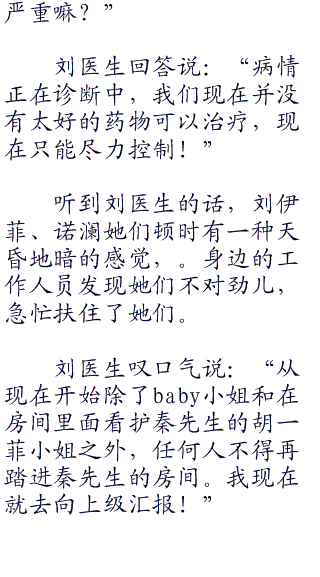 严重嘛？”
刘医生回答说：“病情
正在诊断中，我们现在并没
有太好的药物可以治疗，现
在只能尽力控制！”
听到刘医生的话，刘伊
菲、诺澜她们顿时有一种天
昏地暗的感觉，。身边的工
作人员发现她们不对劲儿，
急忙扶住了她们。
刘医生叹口气说：“从
现在开始除了baby小姐和在
房间里面看护秦先生的胡一
菲小姐之外，任何人不得再
踏进秦先生的房间。我现在
就去向上级汇报！”